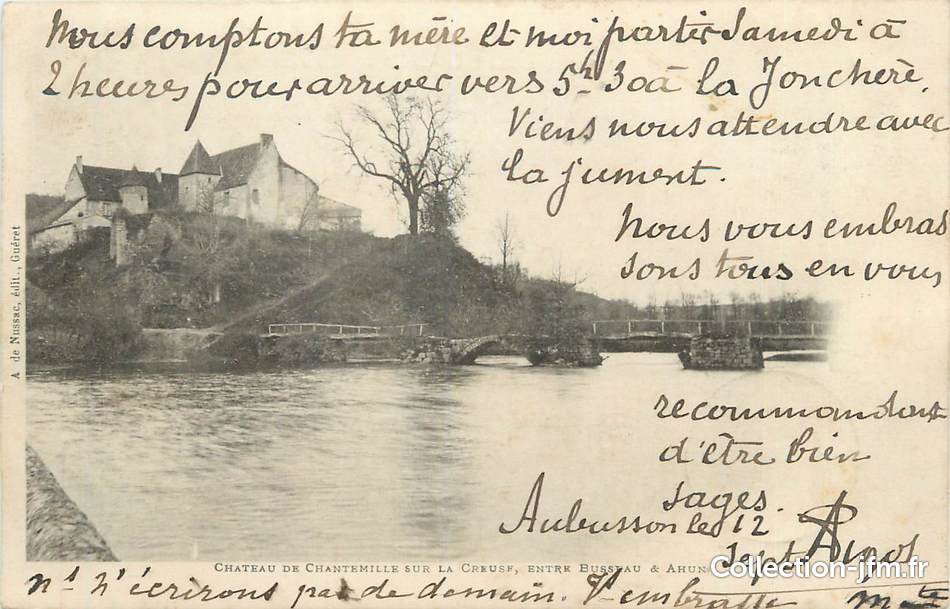 Nous comptons ta mère et moi partir Samedi à
2 heures pour arriver vers 5h 30 à la Jonchère.
Viens nous attendre avec
la jument.
Nous vous embras
sons tous en vous
recommandant
d'être bien
sages.
Aubusson le 12
Sept.
A de Nussac, édit., Guéret
CHATEAU DE CHANTEMILLE SUR LA CREUSE, ENTRE BUSSEAU & AHUN
Collection-jfm.fr
ns n'écrirons pas de demain. Vs embrasse